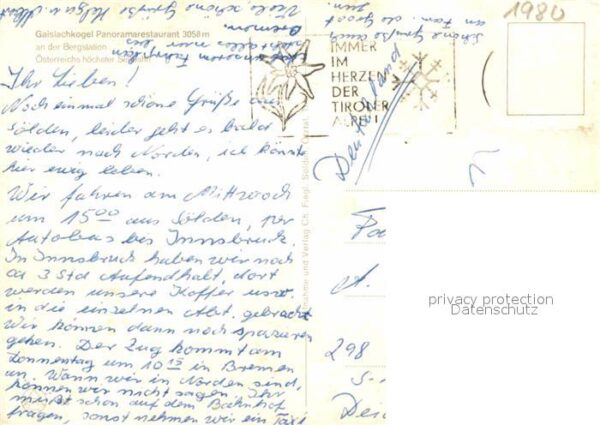 1980
Gaislachkogel Panoramarestaurant 3058 m
an der Bergstation
Österreichs höchster
IMMER
IM
HERZEN
DER
TIROLER
ALPEN
Ihr Lieben!
Noch einmal schöne Grüße aus
Sölden, leider geht es bald
wieder nach Norden, ich könnte
hier ewig leben.
Wir fahren am Mittwoch
um 15 00 aus Sölden, per
Autobus bis Innsbruck.
In Innsbruck haben wir noch
ca 3 Std Aufendhalt, dort
werden unsere Koffer usw.
in die einzelnen Abt. gebracht
Wir können dann noch spazieren
gehen. Der Zug kommt am
Donnerstag um 10 13 in Bremen
an. Wann wir in Norden sind,
können wir nicht sagen. Ihr
müßt schon auf dem Bahnhof
fragen, sonst nehmen wir ein Taxi
Bremen.
Viele schöne Grüße Helga u. Albert
Schöne Grüße auch
an Fam. de Groot
Deutschland
und Verlag Ch. Fiegl, Sölden, Tirol.
298
privacy protection
Datenschutz